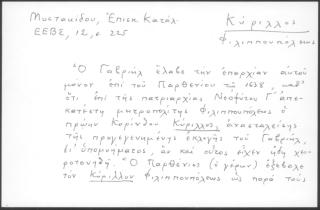 Μυστακίδου, Ἐπισκ. Κατάλ.
ΕΕΒΣ, 12, σ 225
Κύριλλος
Φιλιππουπόλεως
Ὁ Γαβριὴλ ἔλαβε τὴν ἐπαρχίαν αὐτοῦ
μόνον ἐπὶ τοῦ Παρθενίου τῷ 1638 καθ'
ὅτι ἐπὶ τῆς πατριαρχίας Νεοφύτου Γ' ἀπε-
κατέστη μητροπολίτης Φιλιππουπόλεως ὁ
πρώην Κορίνθου Κύριλλος, ἀνασταλείσης
τῆς προγεγενημένης ἐκλογῆς τοῦ Γαβριὴλ,
δι' ὑπομνήματος, ἂν καὶ οὗτος εἶχεν ἤδη χει-
ροτονηθῆ. Ὁ Παρθένιος (ὁ γέρων) ἐξέβαλε
τὸν Κύριλλον Φιλιππουπόλεως ὡς παρὰ τοὺς